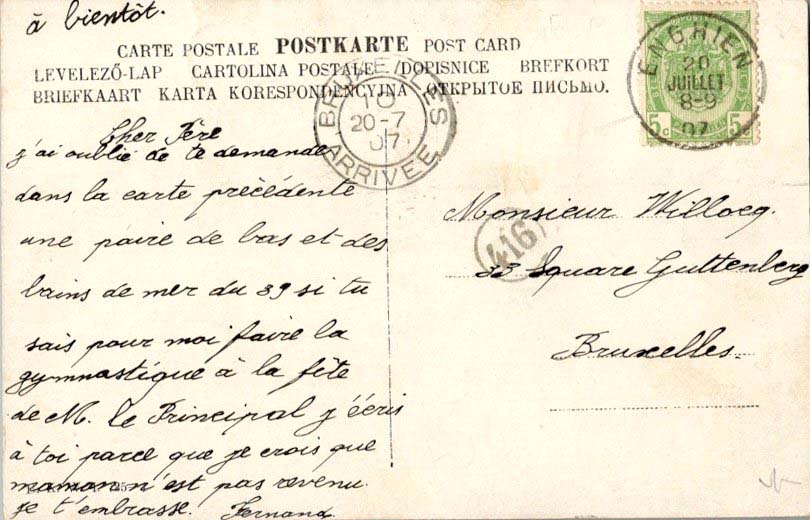 à bientôt.
CARTE POSTALE POSTKARTE POST CARD
LEVELEZŐ-LAP CARTOLINA POSTALE /DOPISNICE BREFKORT
BRIEFKAART KARTA KORESPONDENCYJNA ОТКРЫТОЕ ПИСЬМО.
ENGHIEN
20
JUILLET
8-9
07
5c 5c
BRUXELLES
10
20-7
07
ARRIVÉE
Cher Père
j'ai oublié de te demander
dans la carte précédente
une paire de bas et des
bains de mer du 39 si tu
sais pour moi faire la
gymnastique à la fête
de M. le Principal j'écris
à toi parce que je crois que
maman n'est pas revenu
je t'embrasse. Fernand
416
Monsieur Willocq.
33 Square Guttenberg
Bruxelles.